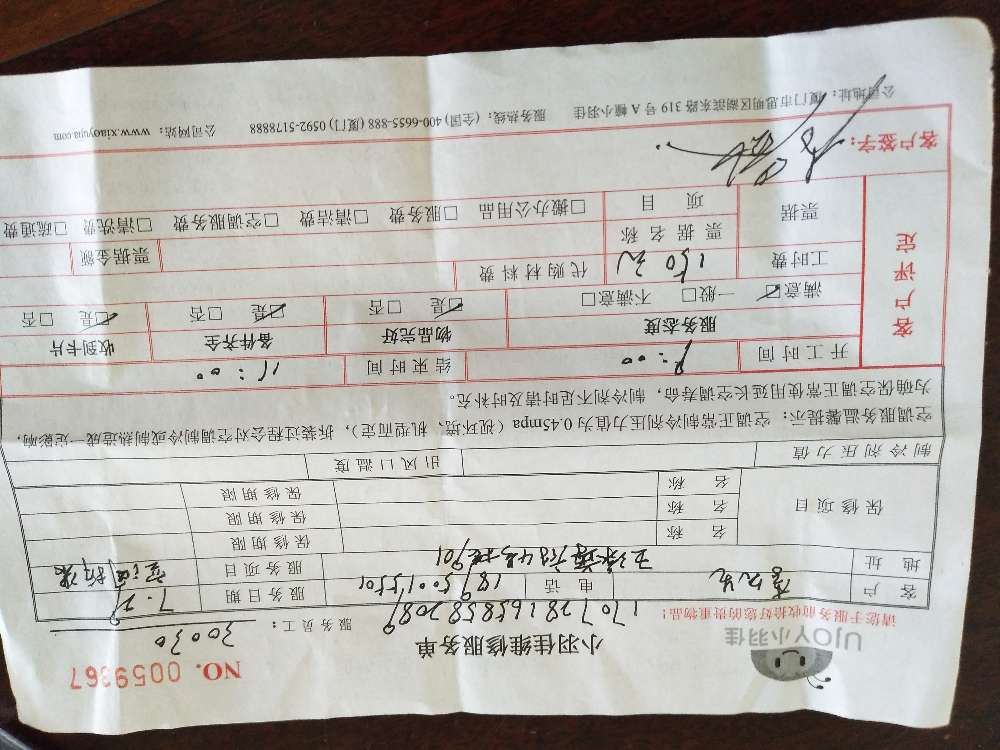 UJOY小羽佳
小羽佳维修服务单
NO. 0059367
170728165858208
请您于服务前收拾好您的贵重物品！
服务员工：30030
客户 电话 服务日期 7.28
地址 服务项目
保修项目 名称 保修期限
名称 保修期限
名称 保修期限
制冷剂压力值 引风口温度
空调服务温馨提示：空调正常制冷剂压力值为0.45mpa（视环境、机型而定），拆装过程会对空调制冷或制热造成一定影响，
为确保空调正常使用延长空调寿命，制冷剂不足时请及时补充。
客户评定
开工时间 9:00 结束时间 11:00
服务态度 物品完好 备件齐全 收到卡片
满意☑ 一般□ 不满意□ ☑是 □否 ☑是 □否 ☑是 □否
工时费 150元 代购材料费 票据金额
票据 票据名称
项目 □搬办公用品 □服务费 □清洁费 □空调服务费 □清洗费 □疏通费
客户签字：
公司地址：厦门市思明区湖滨东路319号A幢小羽佳 服务热线：(全国) 400-6655-888 (厦门) 0592-5178888 公司网站：www.xiaoyujia.com